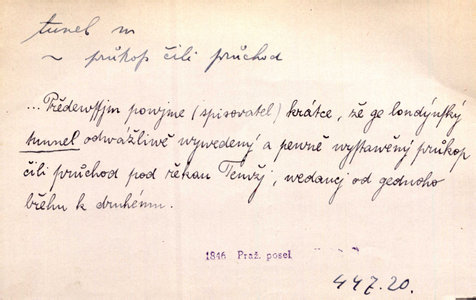 tunel m
~ průkop čili průchod
... Předewssjm powjme (spisovatel) krátce, žě ge londýnský
tunnel odwážliwě wywedený a pewně wystawěný průkop
čili průchod pod řekau Temžj, wedaucj od gednoho
břehu k druhému.
1846 Praž. posel
447.20.